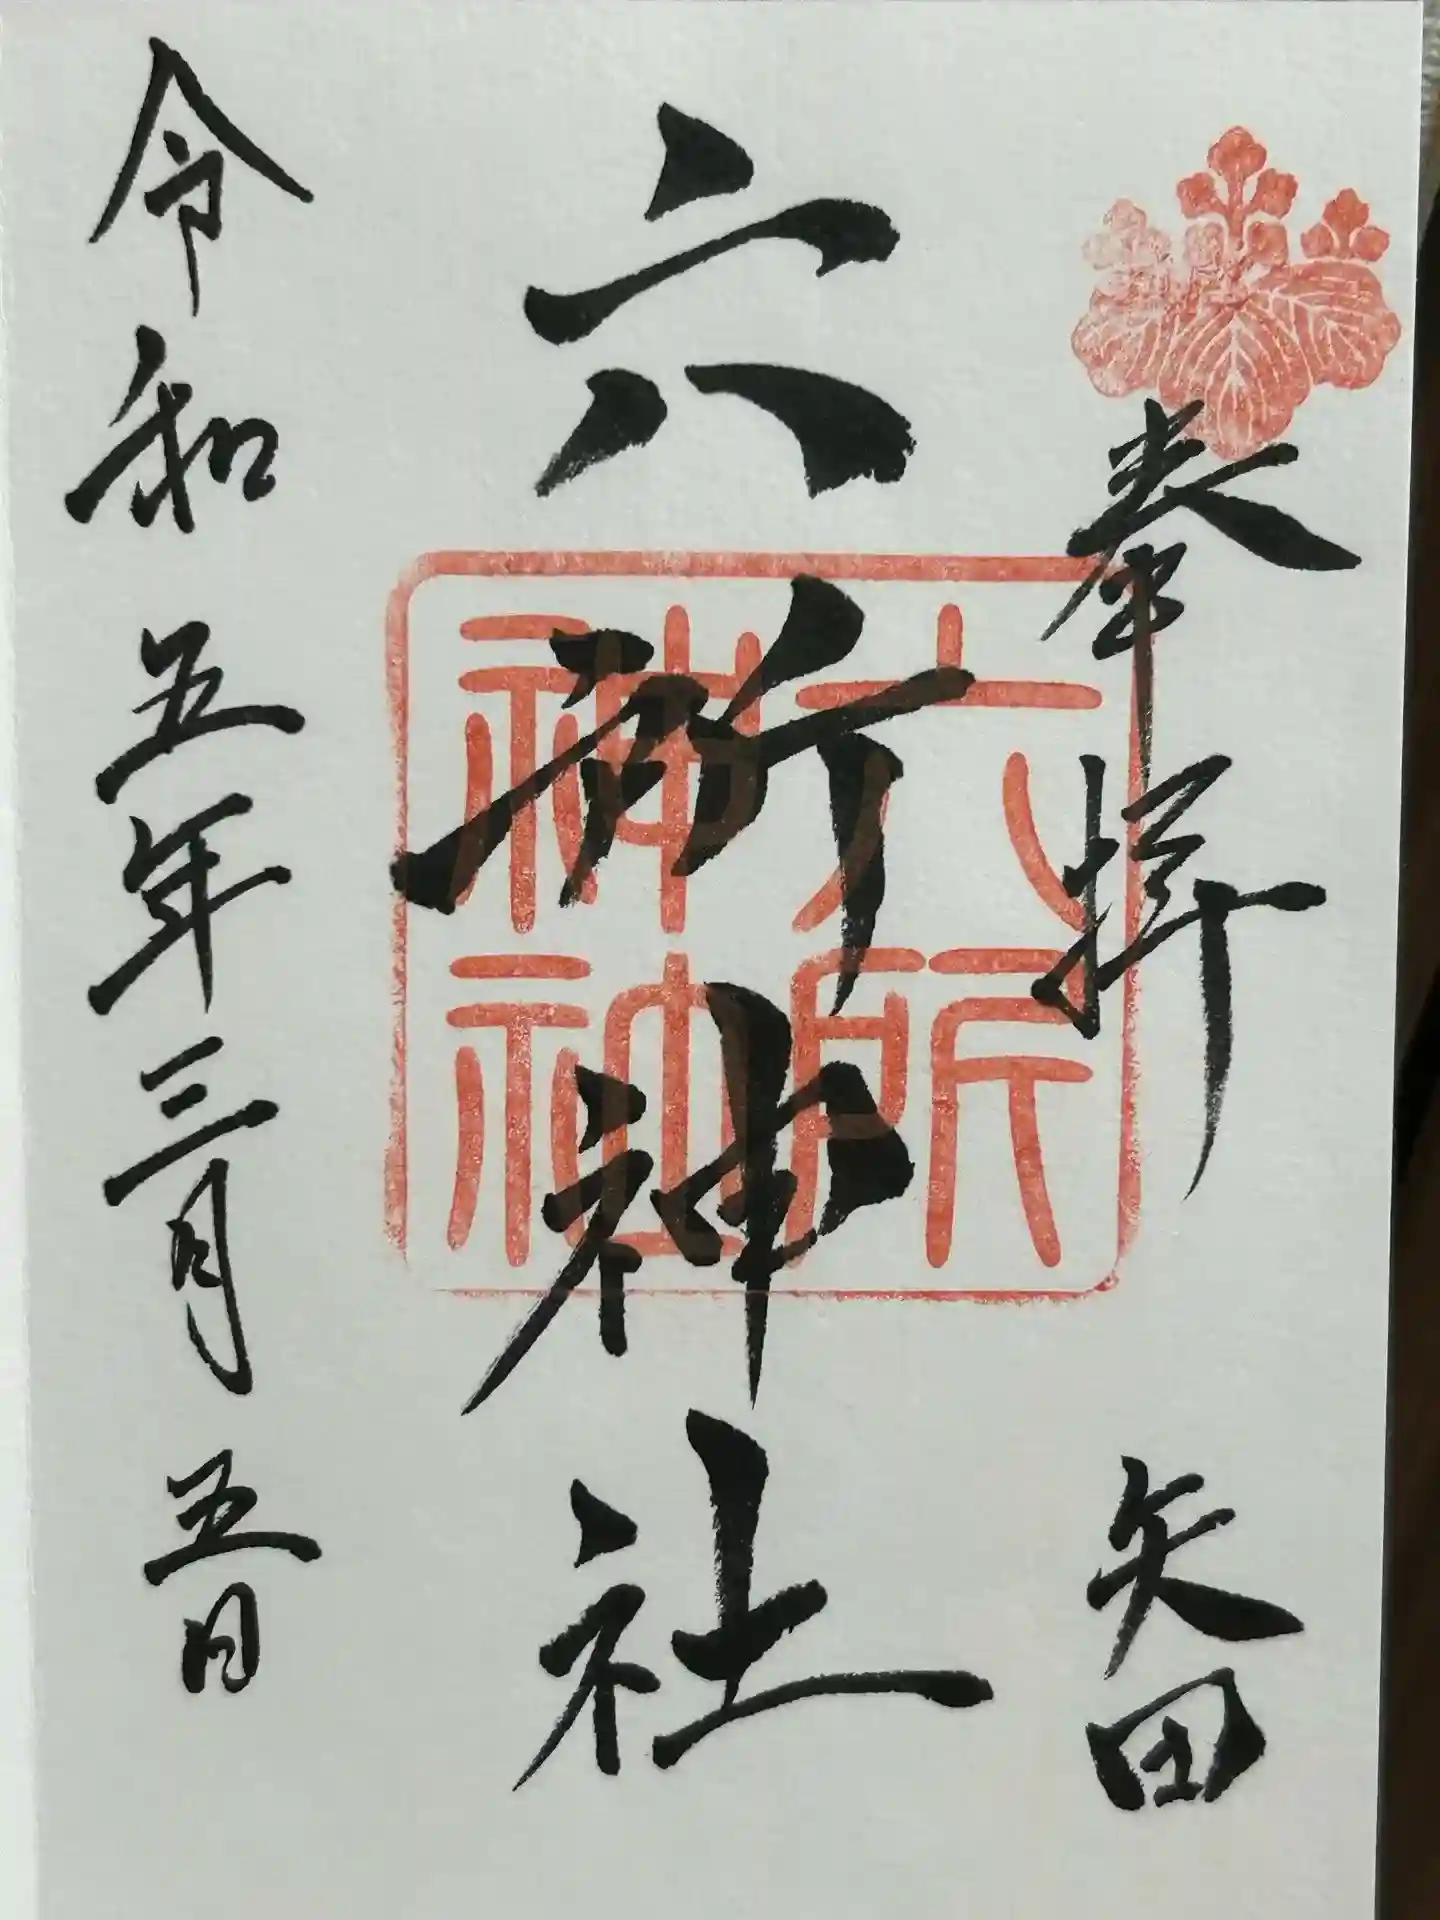 奉拝
矢田
六所神社
六所神神
令和五年三月五日